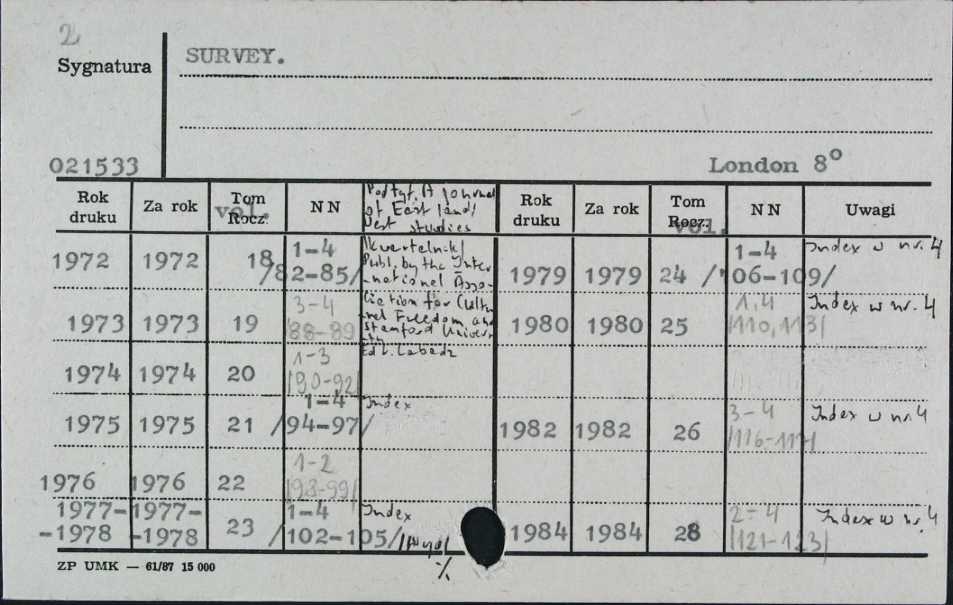 2
Sygnatura
SURVEY.
021533
London 8°
Rok druku Za rok Tom Rocz. vol. NN Podtyt. A journal of East [and] West studies Rok druku Za rok Tom Rocz. vol. NN Uwagi
1972 1972 18 1-4 /82-85/ /kwartalnik/
Publ. by the Inter
-national Asso-
ciation for Cultu
ral Freedom and
Stanford Univer-
Ed. L. Labedz
1979 1979 24 1-4 /106-109/ Index w nr. 4
1973 1973 19 3-4 /88-89/
1980 1980 25 1,4 /110,113/ Index w nr. 4
1974 1974 20 1-3 /90-92/
1975 1975 21 1-4 /94-97/ Index
1982 1982 26 3-4 /116-117/ Index w nr 4
1976 1976 22 1-2 /98-99/
1977-
-1978 1977-
-1978 23 1-4 /102-105/ Index
1984 1984 28 2-4 /121-123/ Index w nr. 4
./.
ZP UMK — 61/87 15 000